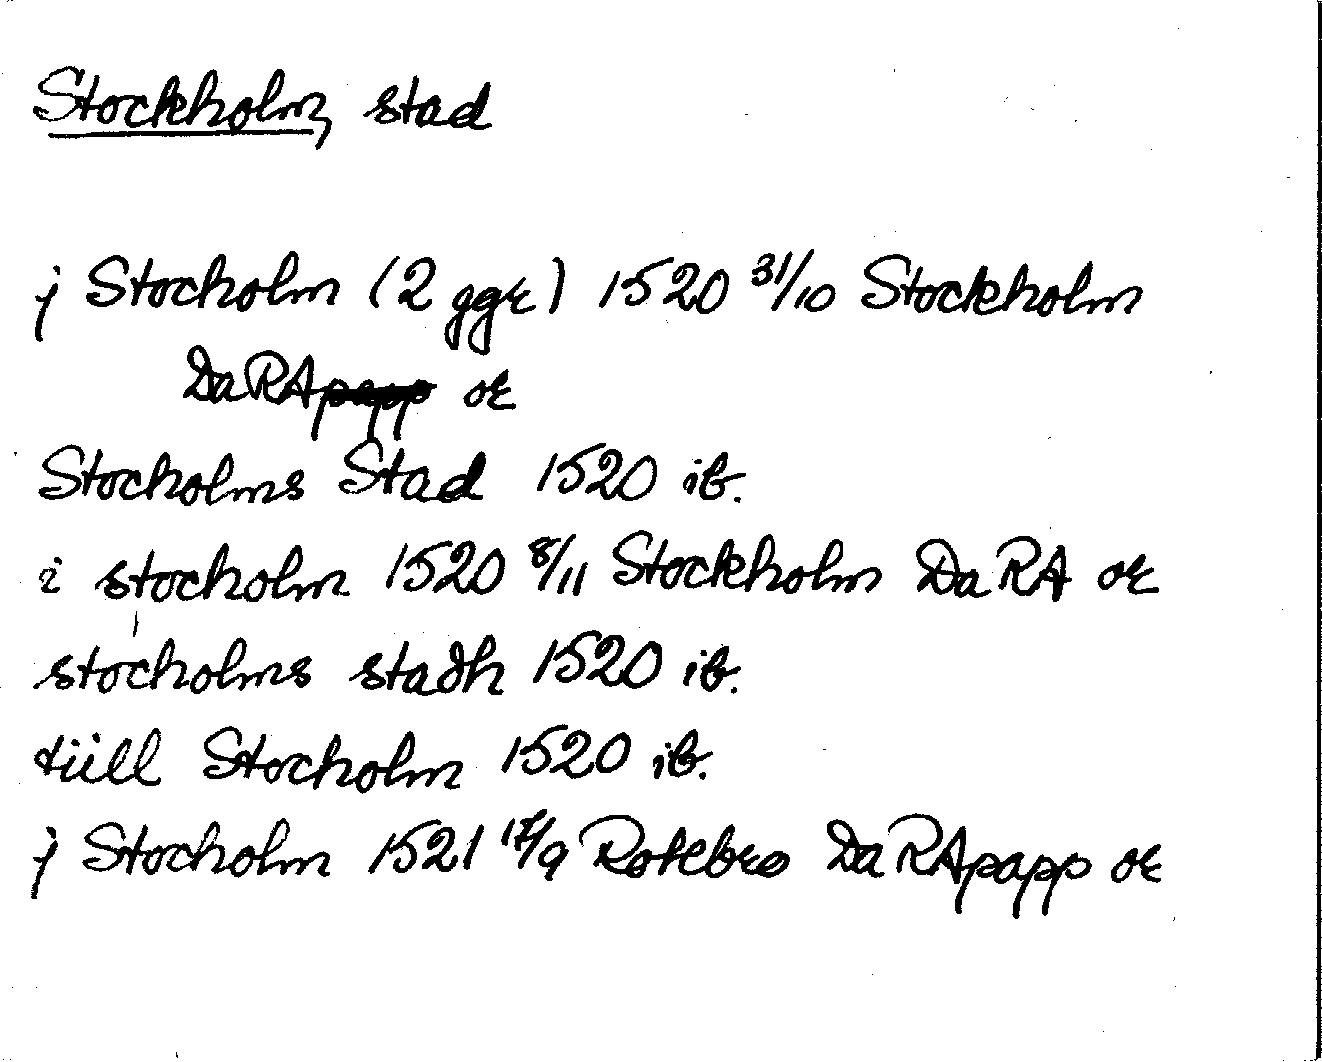 Stockholm, stad
j Stocholm (2 ggr) 1520 31/10 Stockholm
DaRA or
Stocholms Stad 1520 ib.
i stocholm 1520 8/11 Stockholm DaRA or
stocholms stadh 1520 ib.
tüll Stocholm 1520 ib.
j Stocholm 1521 17/9 Rotebro DaRApapp or